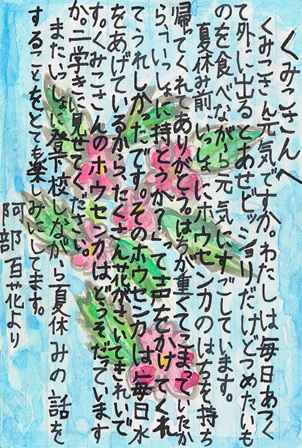 くみこさんへ
くみこさん元気ですか。わたしは毎日あつく
て外に出るとあせビッショリだけどつめたいも
のを食べながら元気にすごしています。
夏休み前、いっしょにホウセンカのはちを持ち
帰ってくれてありがとう。はちが重くてこまっていたか
ら、「いっしょに持とうか？」って声をかけてくれ
てうれしかったです。そのホウセンカは毎日水
をあげているからたくさん花がさいてきれいで
す。くみこさんのホウセンカはどうそだっています
か。二学きに見せてください。
またいっしょに登下校しながら夏休みの話を
することをとても楽しみにしてます。
阿部百花より